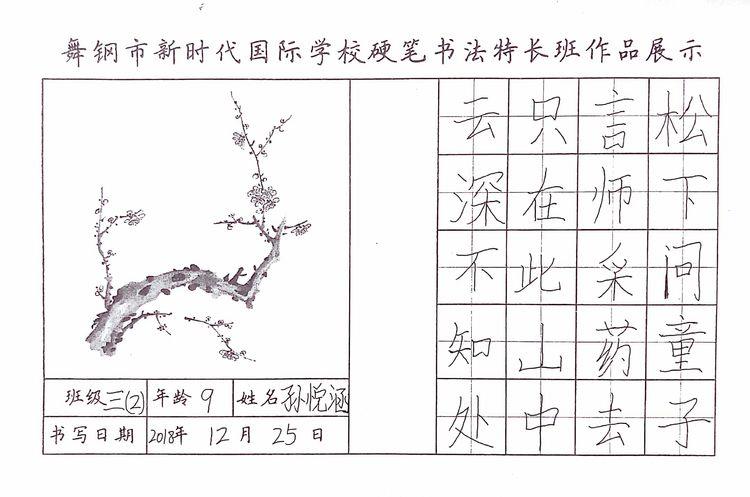 舞钢市新时代国际学校硬笔书法特长班作品展示
松下问童子
言师采药去
只在此山中
云深不知处
班级 三(2) 年龄 9 姓名 孙悦涵
书写日期 2018年 12月 25日